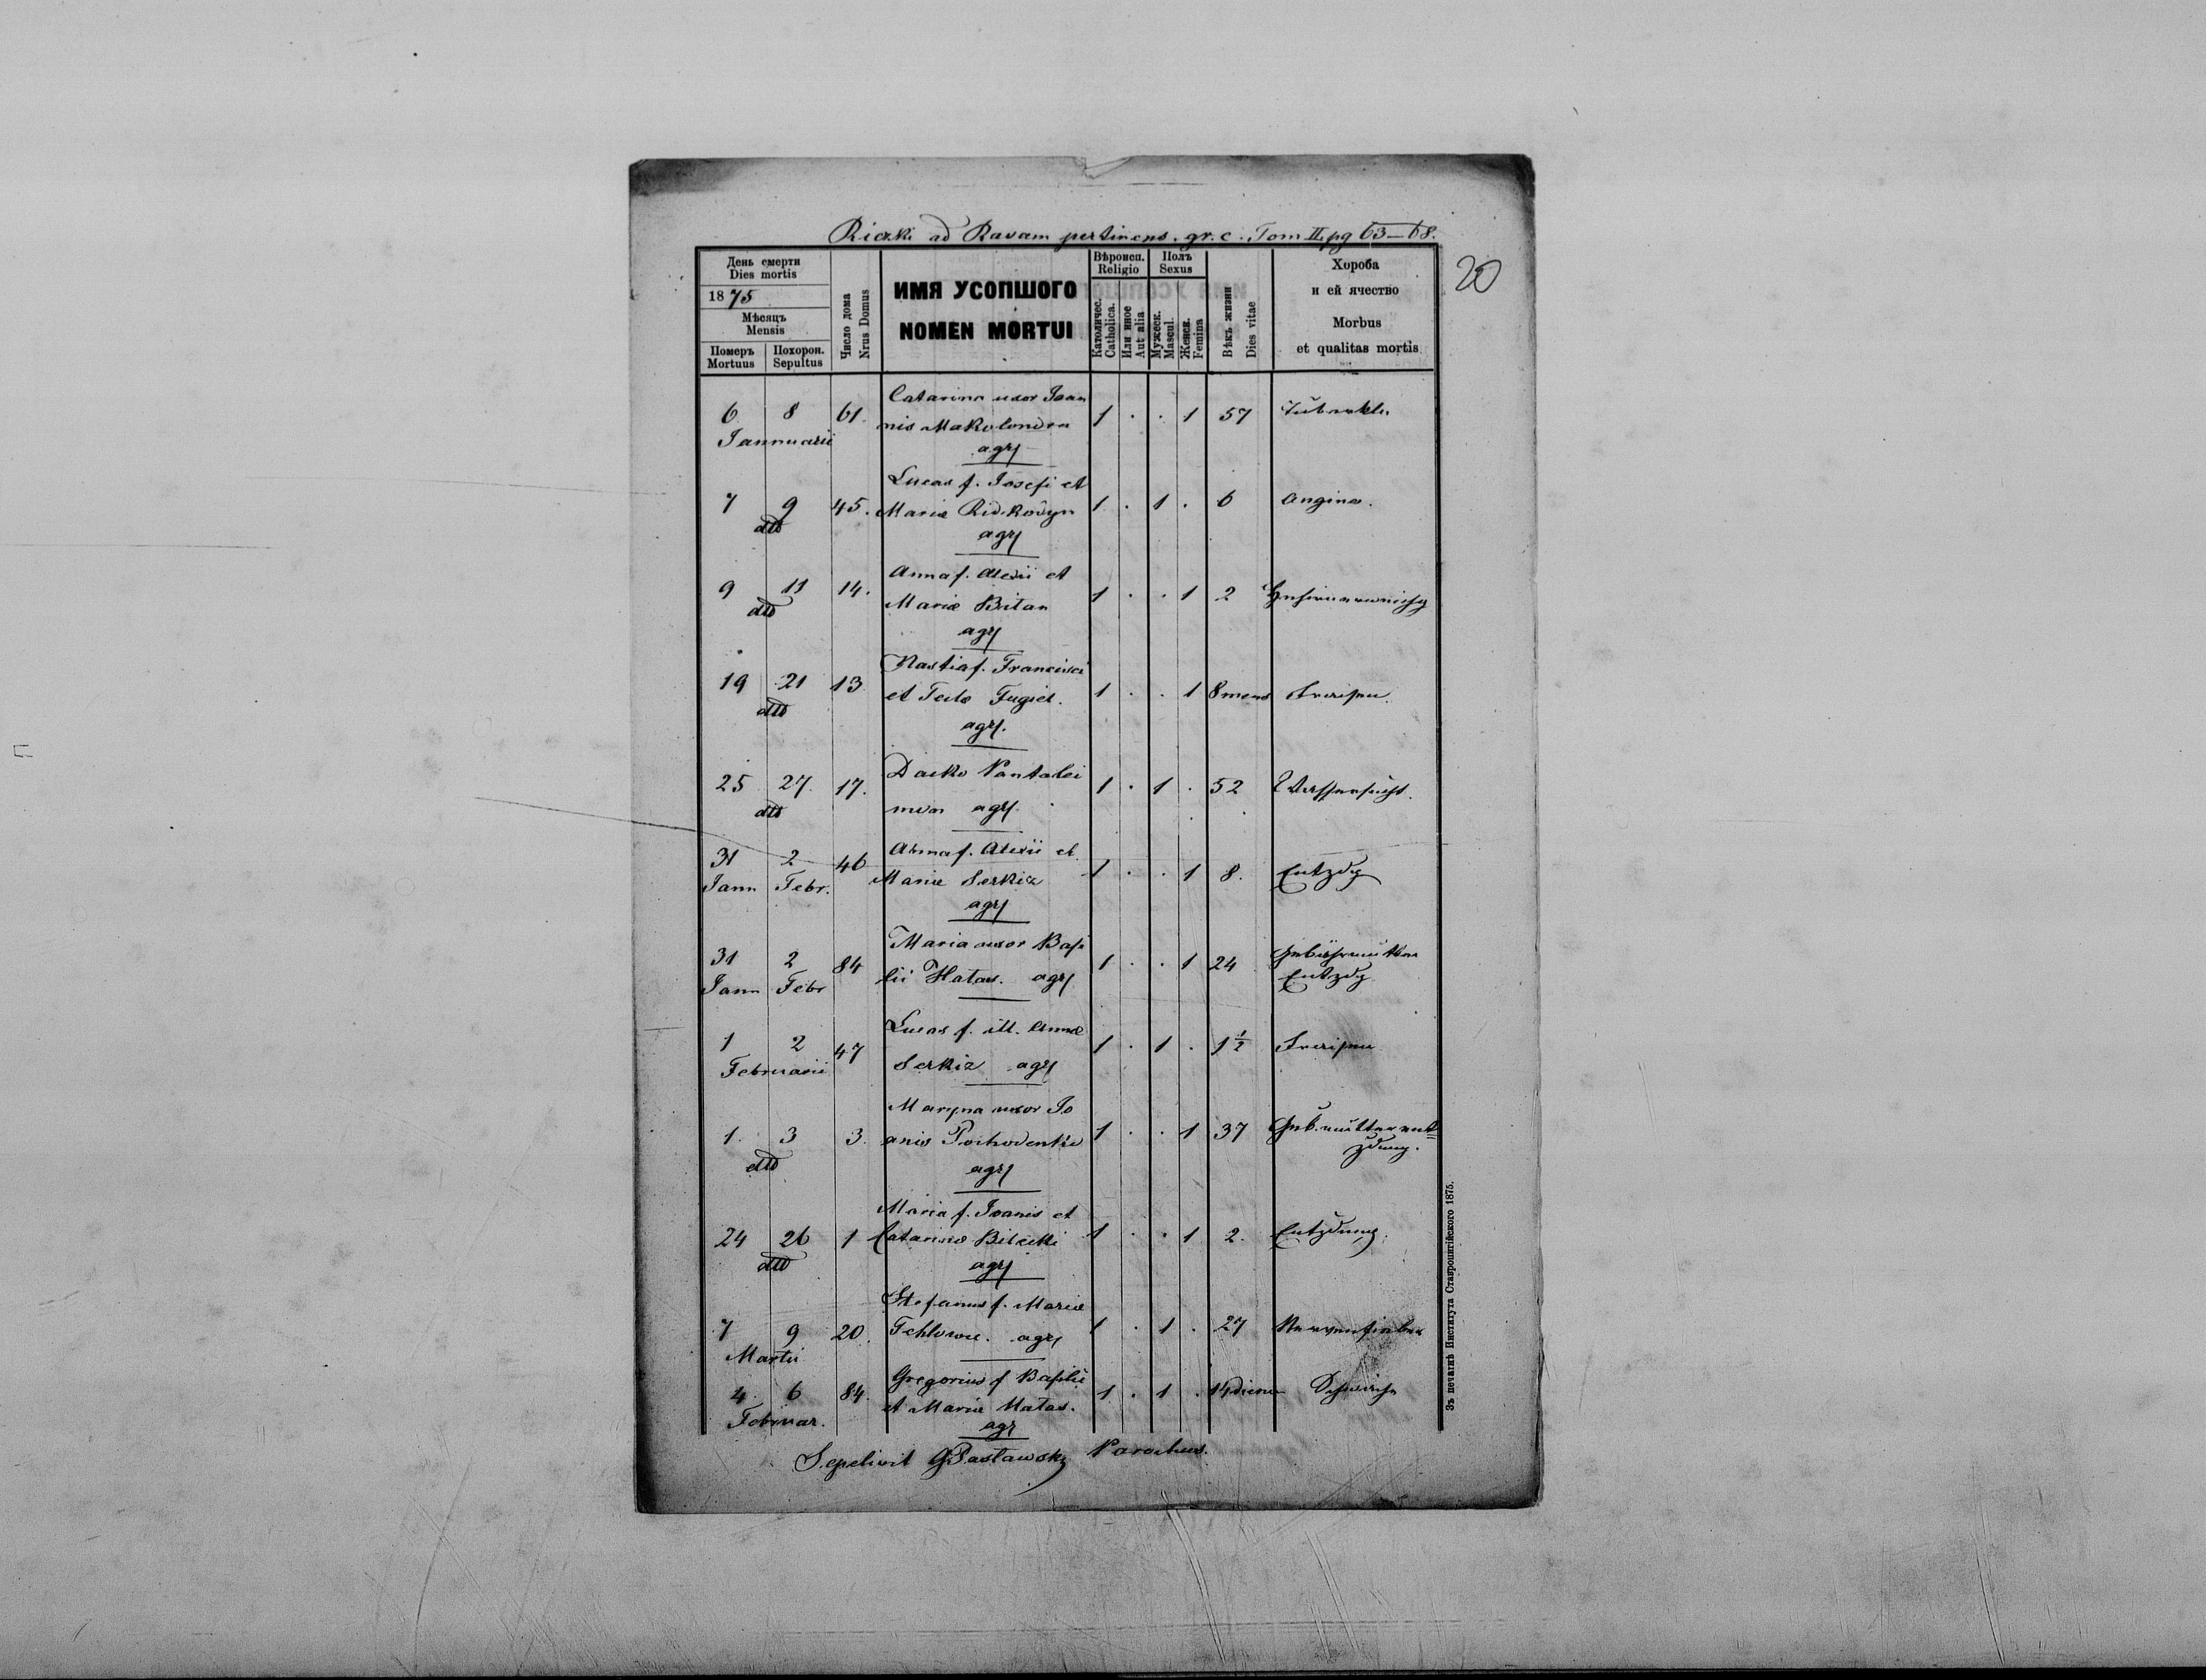 Rieczki ad Ravam pertinens. gr. c. Tom II. pg 63–68.
20
День смерти
Dies mortis
1875
Мѣсяцъ
Mensis
Померъ
Mortuus
Похорон.
Sepultus
Число дома
Nrus Domus
ИМЯ УСОПШОГО
NOMEN MORTUI
Вѣроисп.
Religio
Католичес.
Catholica.
Или иное
Aut alia
Полъ
Sexus
Мужеск.
Mascul.
Женск.
Femina
Вѣкъ жизни
Dies vitae
Хороба
и ей ячество
Morbus
et qualitas mortis
6 8 61. Catarina uxor Joan
nis 1 . . 1 57
Januarii
agr
Lucas f. Josefi et
7 9 45. Mariæ 1 . 1 . 6 Angina.
dtto
agr
Anna f. Alexii et
9 11 14. Mariæ Bitan 1 . . 1 2
dtto
agr
Nastia f. Francisci
19 21 13 et Teclæ Fugiel. 1 . . 1 8 mens
dtto
agr.
25 27. 17. Dacko Pantalei 1 . 1 . 52 Wassersucht.
dtto
mon agr.
Anna f. Alexii et
31 2 46 Mariæ Serkiz 1 . . 1 8. Entzdg
Jann Febr.
agr
Maria uxor Basi
31 2 84 lii Hatas. agr 1 . . 1 24 Gebährmutter
Jann Febr Entzdg
Lucas f. ill. Annæ
1 2 47 Serkiz agr 1 . 1 . 1½
Februarii
Maryna uxor Jo
1. 3 3. anis 1 . . 1 37 Geb.mutter ent=
dtto zdung.
agr
Maria f. Joanis et
24 26 1 Catarinæ Bilecki 1 . . 1 2. Entzdung.
dtto
agr
Stefanus f. Mariæ
7 9 20. agr 1 . 1 . 27 Nervenfieber
Martii
Gregorius f Basilii
4 6 84. et Mariæ Hatas. 1 . 1 . 14 dierum Schwäche
Februar.
agr
Sepelivit GPasławsky Parochus.
Зъ печатнѣ Института Ставропигійского 1875.